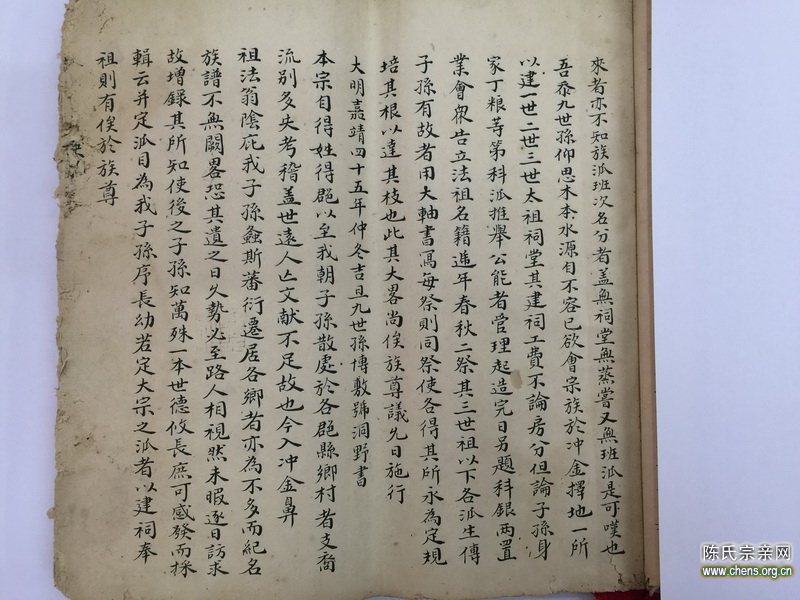 來者亦不知族派班次名分者盖無祠堂無蒸嘗又無班派是可嘆也
吾忝九世孫仰思木本水源自不容已欲會宗族於冲金擇地一所
以建一世二世三世太祖祠堂其建祠工費不論房分但論子孫身
家丁粮等第科派推舉公能者管理起造完日另題科銀两置
業會衆告立法祖名籍遞年春秋二祭其三世祖以下各派生傳
子孫有故者用大軸書寫每祭則同祭使各得其所永為定規
培其根以達其枝也此其大畧尚俟族尊議允日施行
大明嘉靖四十五年仲冬吉旦九世孫博敷號洞野書
本宗自得姓得郡以至我朝子孫散處於各郡縣鄉村者支裔
流別多失考稽盖世遠人亡文献不足故也今入冲金鼻
祖法翁陰庇我子孫螽斯蕃衍遷居各鄉者亦為不多而紀名
族譜不無闕畧恐其遺之日久勢必至路人相視然未暇逐日訪求
故增錄其所知使後之子孫知萬殊一本世德攸長庶可感發而採
輯云并定派目為我子孫序長幼若定大宗之派者以建祠奉
祖則有俟於族尊
陈氏宗亲网
www.chens.org.cn